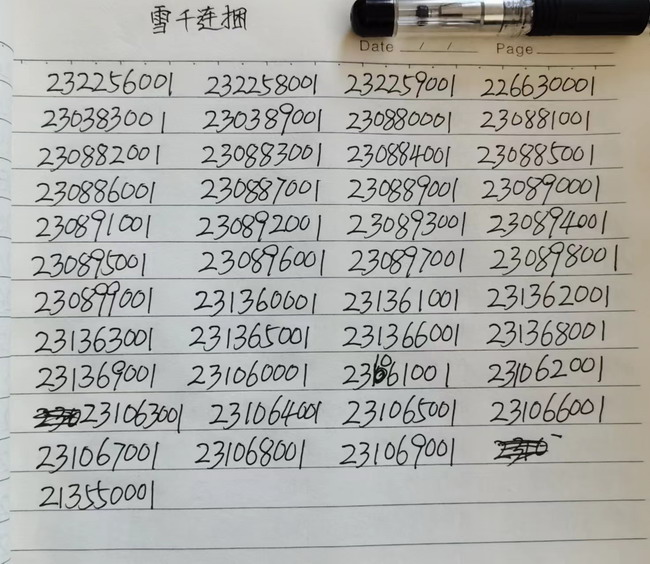 雪千连捆
Date / / Page
232256001 232258001 232259001 226630001
230383001 230389001 230880001 230881001
230882001 230883001 230884001 230885001
230886001 230887001 230889001 230890001
230891001 230892001 230893001 230894001
230895001 230896001 230897001 230898001
230899001 231360001 231361001 231362001
231363001 231365001 231366001 231368001
231369001 231060001 231061001 231062001
231063001 231064001 231065001 231066001
231067001 231068001 231069001
213550001